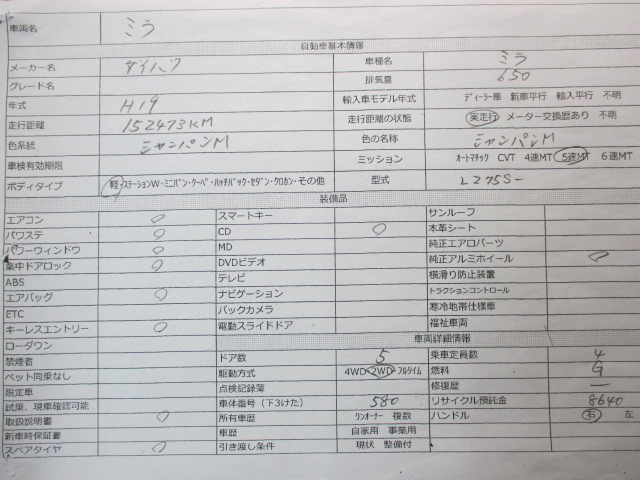 車両名 ミラ
自動車基本情報
メーカー名 ダイハツ 車種名 ミラ
グレード名 排気量 650
年式 H19 輸入車モデル年式 ディーラー車 新車平行 輸入平行 不明
走行距離 152473KM 走行距離の状態 実走行 メーター交換歴あり 不明
色系統 シャンパンM 色の名称 シャンパンM
車検有効期限 ミッション オートマチック CVT 4速MT 5速MT 6速MT
ボディタイプ 軽・ステーションW・ミニバン・クーペ・ハッチバック・セダン・クロカン・その他 型式 L275S-
装備品
エアコン ○ スマートキー サンルーフ
パワステ ○ CD ○ 本革シート
パワーウィンドウ ○ MD 純正エアロパーツ
集中ドアロック ○ DVDビデオ 純正アルミホイール ○
ABS テレビ 横滑り防止装置
エアバッグ ○ ナビゲーション トラクションコントロール
ETC バックカメラ 寒冷地帯仕様車
キーレスエントリー ○ 電動スライドドア 福祉車両
ローダウン 車両詳細情報
禁煙者 ドア数 5 乗車定員数 4
ペット同乗なし 駆動方式 4WD・2WD・フルタイム 燃料 G
限定車 点検記録簿 修復歴 ー
試乗、現車確認可能 車体番号（下3けた） 580 リサイクル預託金 8640
取扱説明書 ○ 所有車歴 ワンオーナー 複数 ハンドル 右 左
新車時保証書 車歴 自家用 事業用
スペアタイヤ ○ 引き渡し条件 現状 整備付